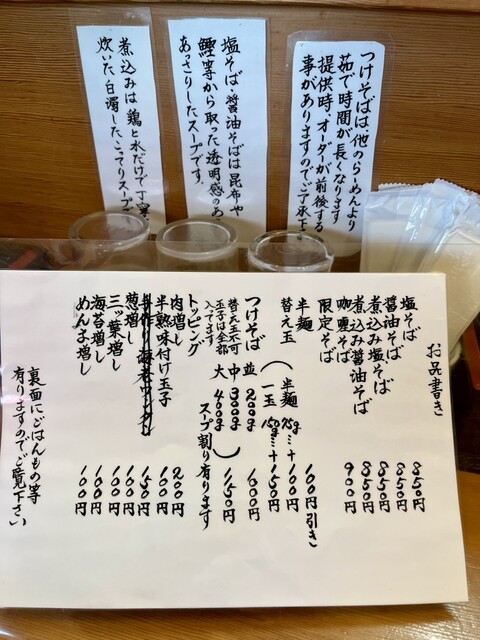 つけそばは他のらーめんより
茹で時間が長くなります
提供時、オーダーが前後する
事がありますのでご了承下
塩そば・醤油そばは昆布や
鰹等から取った透明感のあ
あっさりしたスープです。
煮込みは鶏と水だけで丁寧
炊いた、白濁したこってりスープ
お品書き
塩そば 850円
醤油そば 850円
煮込み塩そば 850円
煮込み醤油そば 850円
咖喱そば 900円
限定そば
半麺 100円引き
替え玉 (半麺 75g…+100円
一玉 150g…+150円)
つけそば 並 200g 1000円
替え玉不可 中 300g
玉子は全部 大 400g 1150円
入ってます
スープ割り有ります
トッピング
肉増し 200円
半熟味付け玉子 100円
手作り海老ワンタン 150円
葱増し 100円
三ッ葉増し 100円
海苔増し 100円
めんま増し 100円
裏面にごはんもの等
有りますのでご覧下さい